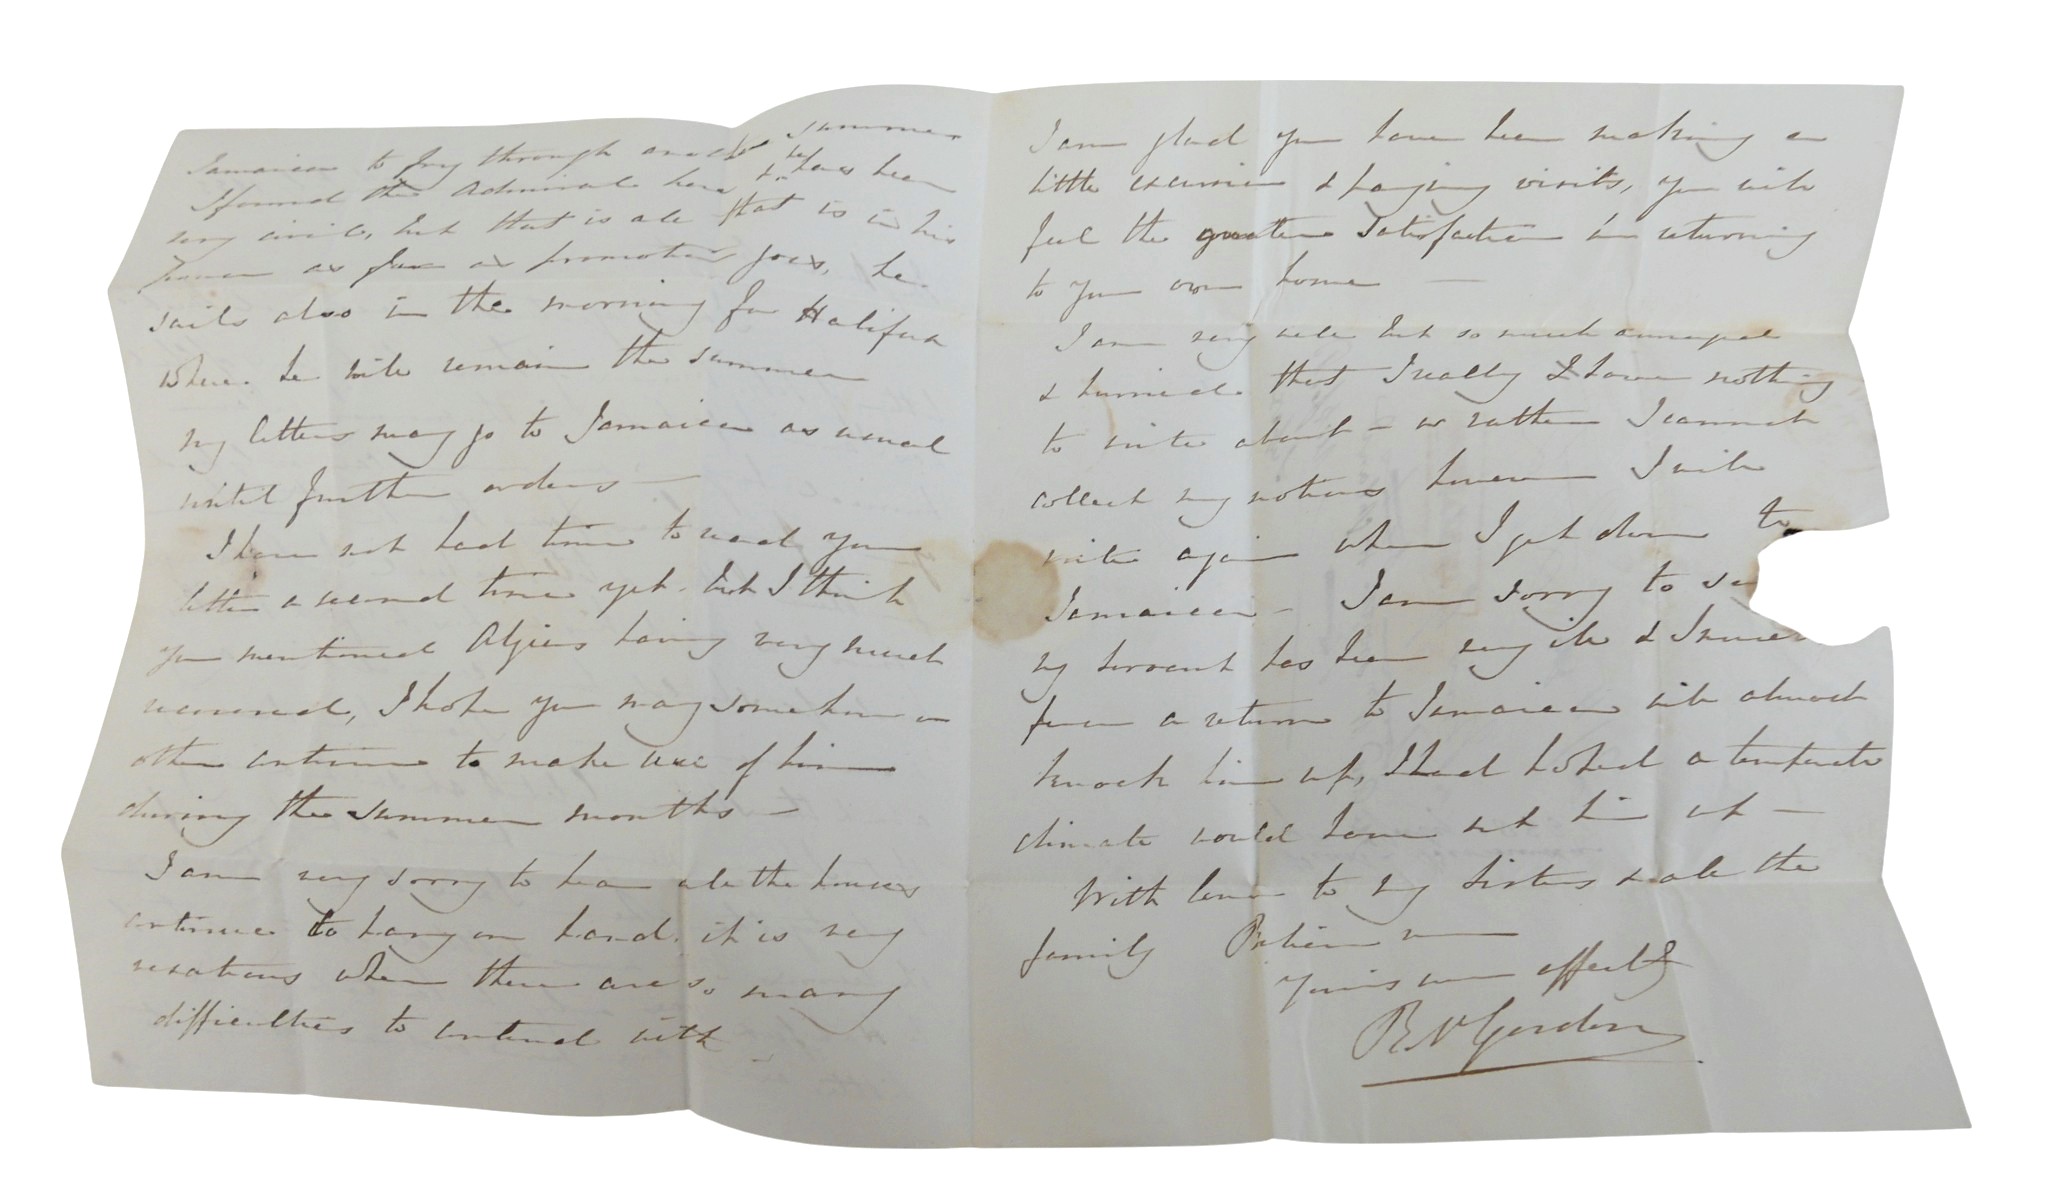 Jamaica to fry through another summer
I found the Admiral here & he has been
very civil, but that is all that is in his
power as far as promotion goes, he
sails also in the morning for Halifax
where he will remain the summer
my letters may go to Jamaica as usual
until further orders —
I have not had time to read your
letter a second time yet. but I think
you mentioned Algiers having very much
recovered, I hope you may somehow or
other continue to make use of him
during the summer months —
I am very sorry to hear all the houses
continue to hang on hand, it is very
vexatious when there are so many
difficulties to contend with —
I am glad you have been making a
little excursion & paying visits, you will
feel the greater satisfaction in returning
to your own home —
I am very well but so much annoyed
& hurried that I really I have nothing
to write about — or rather I cannot
collect my notions however I will
write again when I get down to
Jamaica — I am sorry to
my servant has been very ill & I
fear a return to Jamaica will almost
knock him up, I had hoped a temperate
climate would have set him up —
With love to my Sisters & all the
family Believe me
Yours ever affectly
R Gordon